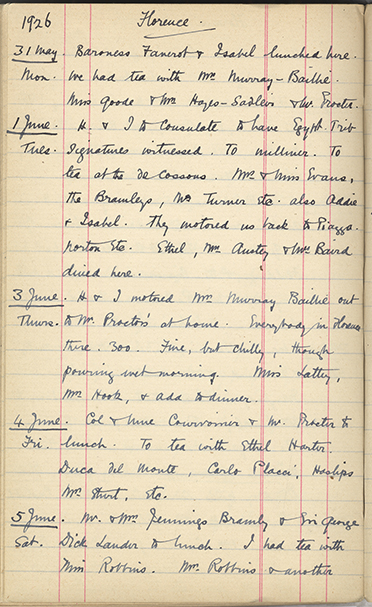 1926 Florence.
31 May. Baroness Fanerot & Isabel lunched here.
Mon. We had tea with Mrs Murray-Baillie.
Miss Goode & Mrs Hayes-Sadler & Mr. Procter.
1 June. H. & I to Consulate to have Egypt. Trib
Tues. signatures witnessed. To milliner. To
tea at the de Cossons. Mrs & Miss Evans,
the Bramleys, Mrs Turner Etc. also Addie
& Isabel. They motored us back to Piazza.
Horton Etc. Ethel, Mrs Austey & Mrs Baird
dined here.
3 June. H & I motored Mrs Murray Baillie out
Thurs. to Mr. Proctor's at home. Everybody in Florence
there. 300. Fine, but chilly, though
pouring wet morning. Miss Lattey,
Mrs Hook, & Add to dinner.
4 June. Col & Mme & Mr. Procter to
Fri. lunch. To tea with Ethel Harter.
Duca del Monte, Carlo Placci, Haslips
Mrs Sturt, Etc.
5 June. Mr. & Mrs Jennings Bramly & Sir George
Sat. Dick Lauder to lunch. I had tea with
Miss Robbins. Mrs Robbins & another